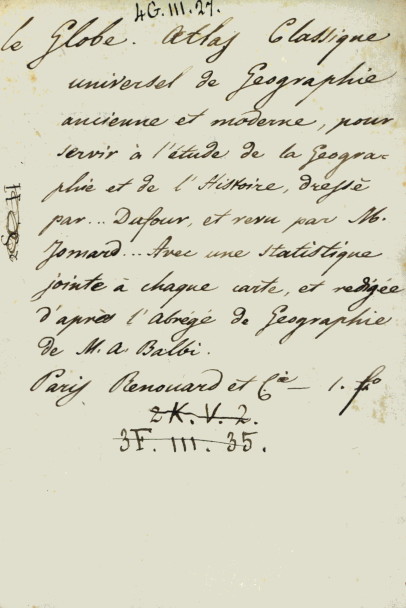 4G. III. 27.
le Globe. Atlas Classique
universel de Geographie
ancienne et moderne, pour
servir à l'étude de la Geogra-
phie et de l'Histoire, dressé
par... Dufour, et revu par M.
Jomard... Avec une statistique
jointe à chaque carte, et redigée
d'après l'Abrégé de Geographie
de M. A Balbi.
Paris Renouard et Cie — 1. fo
2K. V. 2.
3F. III. 35.